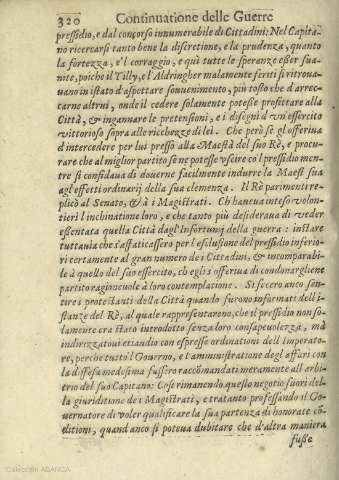 320 Continuatione delle Guerre
pressidio, e dal concorso innumerabile di Cittadini: Nel Capita-
no ricercarsi tanto bene la discretione, e la prudenza, quanto
la fortezza, e'l corraggio, e quì tutte le speranze esser sua-
nite, poiche il Tilly, e l'Aldringher malamente feriti si ritroua-
uano in istato d'aspettare souuenimento, più tosto che d'arrec-
carne altrui, onde il cedere solamente potesse profittare alla
Città, & ingannare le pretensioni, e i disegni d'vn essercito
vittorioso sopra alle ricchezze di lei. Che però sè gl'offeriua
d'intercedere per lui presso alla Maestà del suo Rè, e procu-
rare che al miglior partito se ne potesse vscire col pressidio men-
tre si confidaua di douerne facilmente indurre la Maestà sua
agl'effetti ordinarij della sua clemenza. Il Rè parimenti re-
plicò al Senato, & à i Magistrati. Ch'haueua inteso volon-
tieri l'inchinatione loro, e che tanto più desideraua di veder
essentata quella Città dagl'Infortunij della guerra: instare
tuttauia che s'affaticassero per l'esclusione del pressidio inferio-
ri certamente al gran numero de i Cittadini, & incomparabi-
le à quello del suo essercito, ch'egli s'offeriua di condonargliene
partito ragioneuole à loro contemplatione. Si fecero anco sen-
tire i protestanti della Città quando furono informati dell'i-
stanze del Rè, al quale rappresentarono, che il pressidio non so-
lamente era stato introdotto senza loro consapeuolezza, mà
indirizzatoui etiaudio con espresse ordinationi dell'Imperato-
re, perche tutto'l Gouerno, e l'amministratione degl'affari con
la diffesa medesima fussero raccomandati meramente all'arbi-
trio del suo Capitano: Così rimanendo questo negotio fuori del-
la giuriditione de i Magistrati, e trattanto professando il Go-
uernatore di voler qualificare la sua partenza di honorate cõ-
ditioni, quand'anco si poteua dubitare che d'altra maniera
fusse
Colección ABANCA